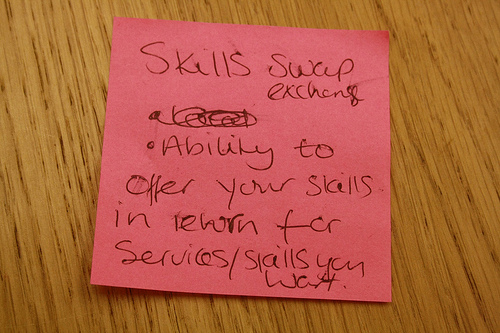 Skills Swap
exchang
• Ability to
Offer your Skills
in return for
Services/skills you
want.